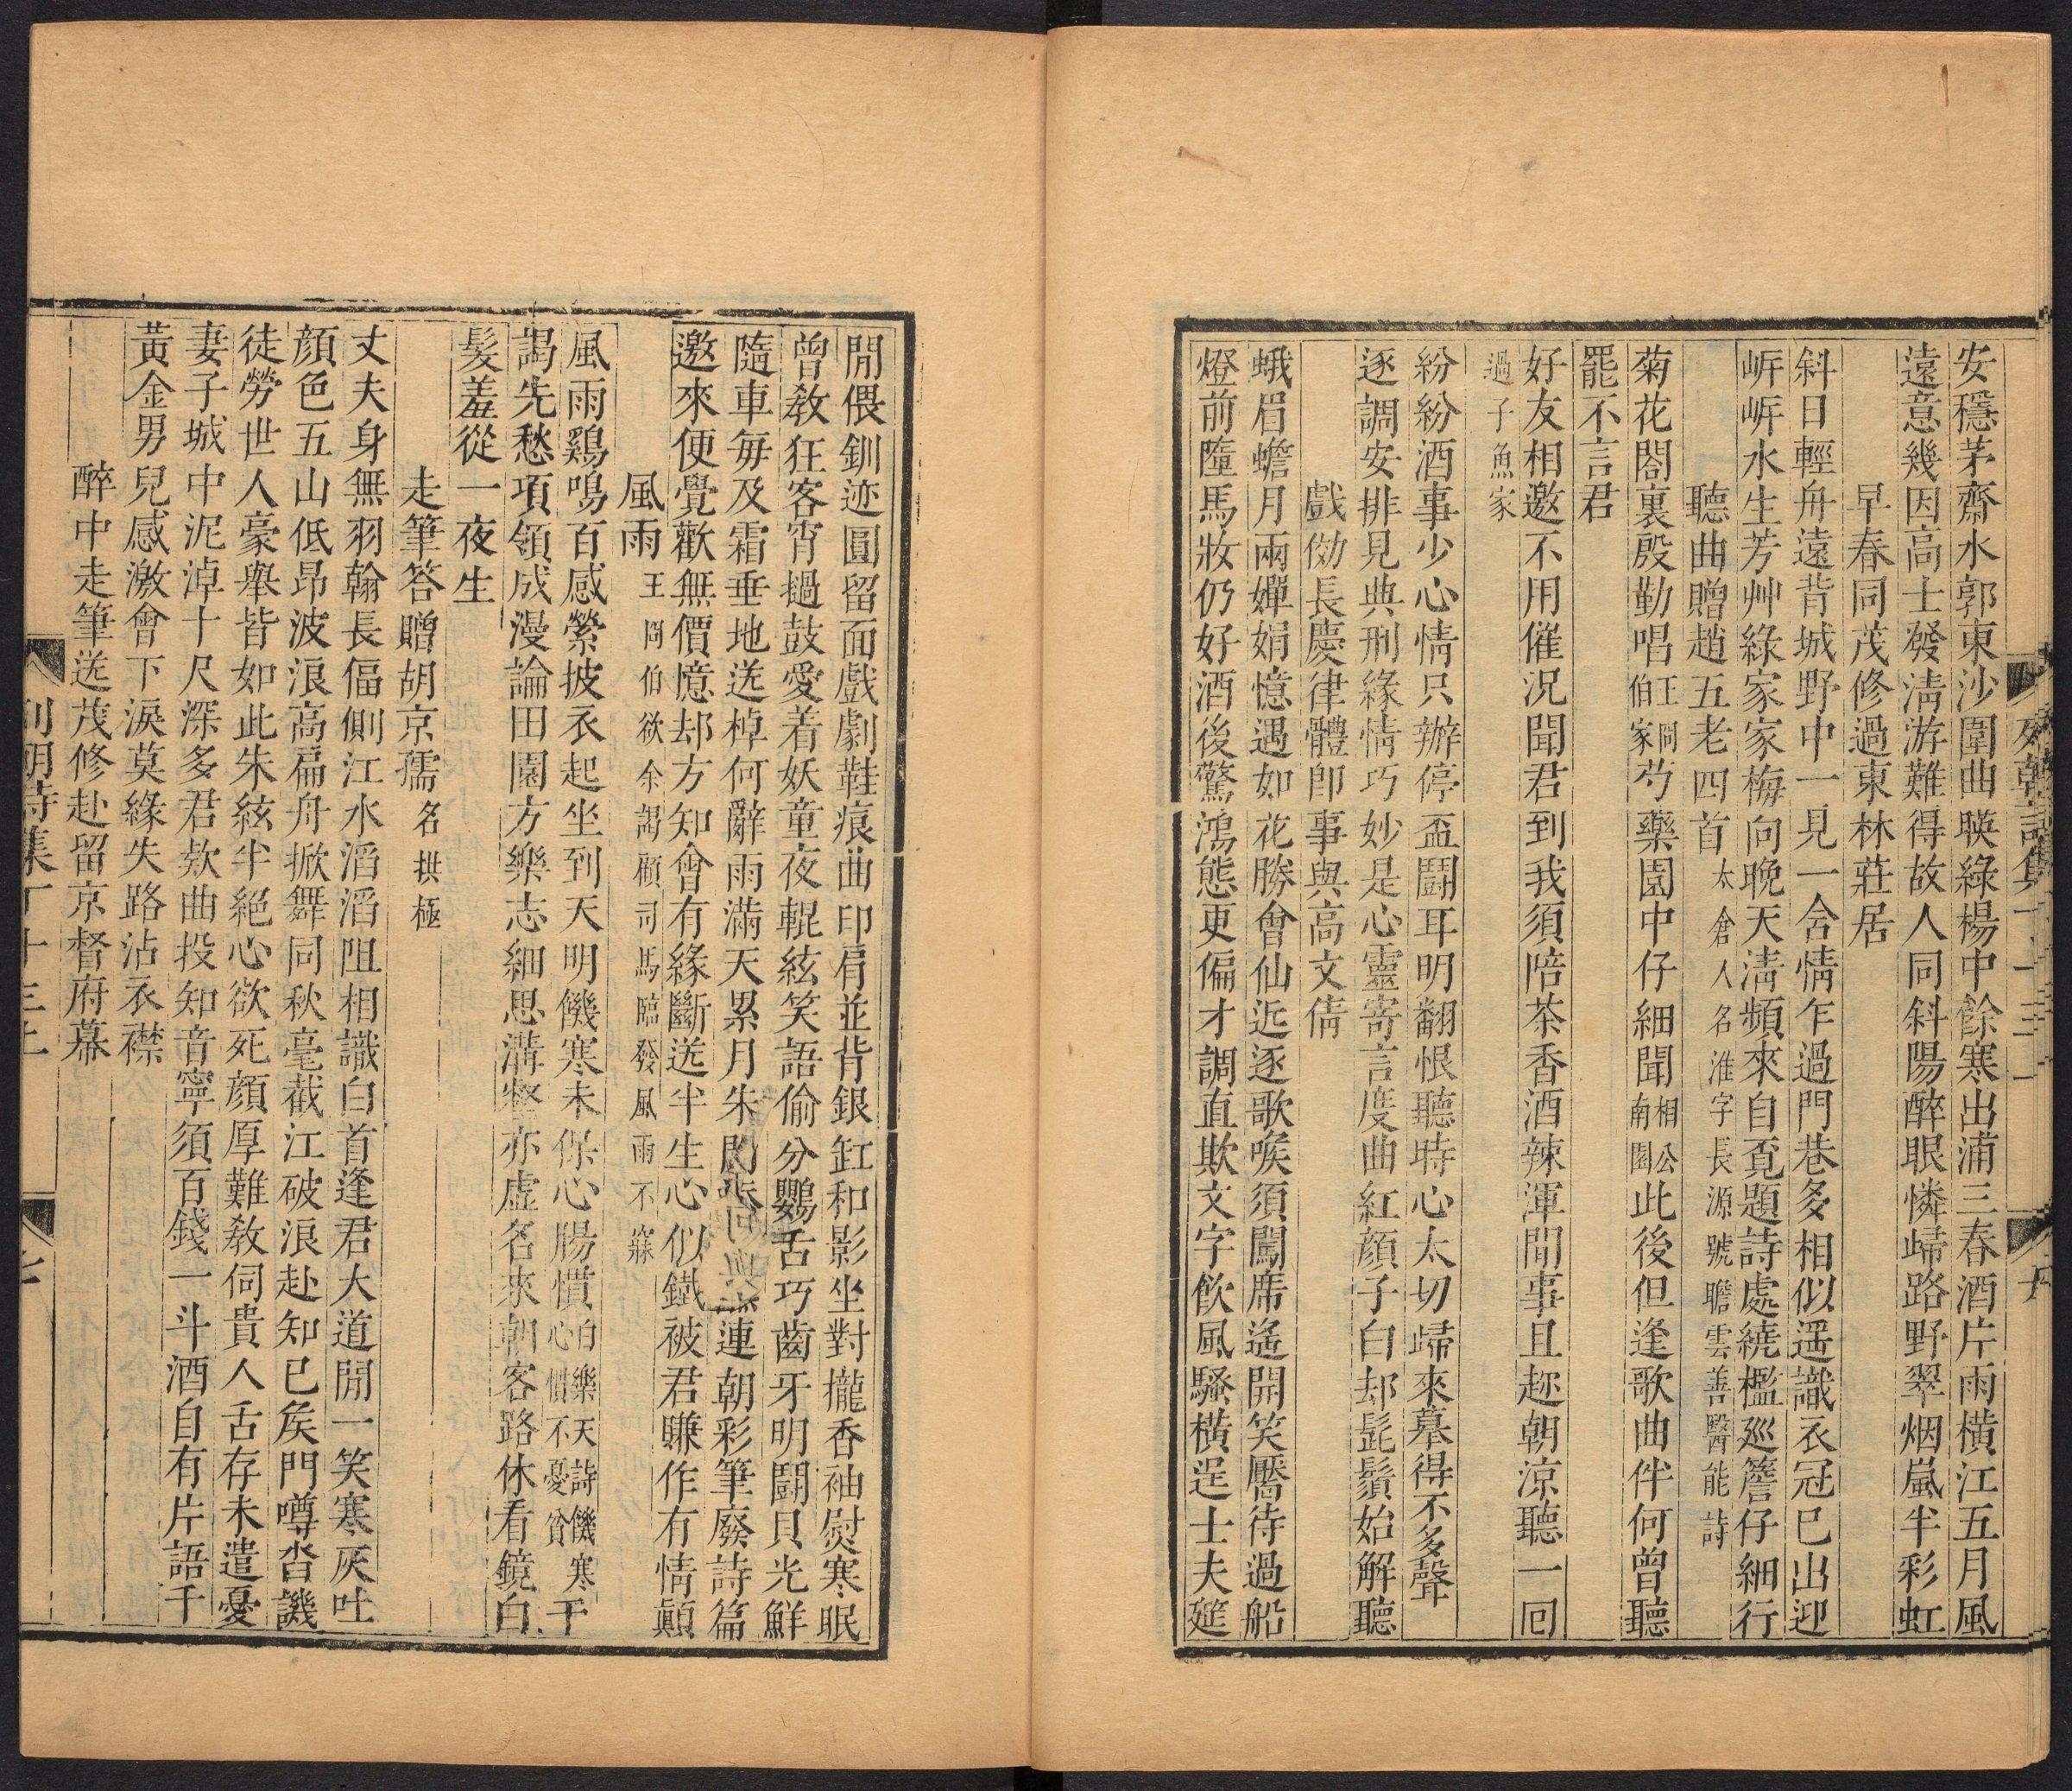 安穩茅齋水郭東沙圍曲暎綠楊中餘寒出浦三春酒片雨橫江五月風
遠意幾因高士發淸游難得故人同斜陽醉眼憐歸路野翠烟嵐半彩虹
早春同茂修過東林莊居
斜日輕舟遠背城野中一見一含情乍過門巷多相似遥識衣冠已出迎
㟁㟁水生芳艸綠家家梅向晚天淸頻來自覔題詩處繞檻廵簷仔細行
聽曲贈趙五老四首太倉人名淮字長源號瞻雲善醫能詩
菊花閣裏殷勤唱王冏伯家芍藥園中仔細聞相公南園此後但逢歌曲伴何曾聽
罷不言君
好友相邀不用催况聞君到我須陪茶香酒辣渾閒事且趂朝涼聽一囘
過子魚家
紛紛酒事少心情只辦停盃鬭耳明翻恨聽時心太切歸來摹得不多聲
逐調安排見典刑緣情巧妙是心靈寄言度曲紅顔子白却髭鬚始解聽
戲倣長慶律體卽事與高文倩
蛾眉蟾月兩嬋娟憶遇如花勝會仙近逐歌喉須闖席遙開笑靨待過船
燈前墮馬妝仍好酒後驚鴻態更偏才調直欺文字飮風騷橫逞士夫筵
列朝詩集丁十三上
六
閒偎釧迹圓留面戲劇鞋痕曲印肩並背銀缸和影坐對攏香袖熨寒眠
曾敎狂客宵撾鼓愛着妖童夜輥絃笑語偷分鸚舌巧齒牙明鬭貝光鮮
隨車每及霜垂地送棹何辭雨滿天累月朱門連朝彩筆廢詩篇
邀來便覺歡無價憶却方知會有緣斷送半生心似鐵被君賺作有情顚
風雨王冏伯欲余謁顧司馬臨發風雨不寐
風雨鷄鳴百感縈披衣起坐到天明饑寒未保心腸慣白樂天詩饑寒心慣不憂貧干
謁先愁項領成漫論田園方樂志細思溝壑亦虛名來朝客路休看鏡白
髮羞從一夜生
走筆答贈胡京孺名拱極
丈夫身無羽翰長偪側江水滔滔阻相識白首逢君大道閒一笑寒灰吐
顔色五山低昂波浪高扁舟掀舞同秋毫截江破浪赴知已矦門噂沓譏
徒勞世人豪舉皆如此朱絃半絕心欲死顔厚難敎伺貴人舌存未遣憂
妻子城中泥淖十尺深多君欵曲投知音寧須百錢一斗酒自有片語千
黃金男兒感激會下淚莫緣失路沾衣襟
醉中走筆送茂修赴留京督府幕
列朝詩集丁十三上
七